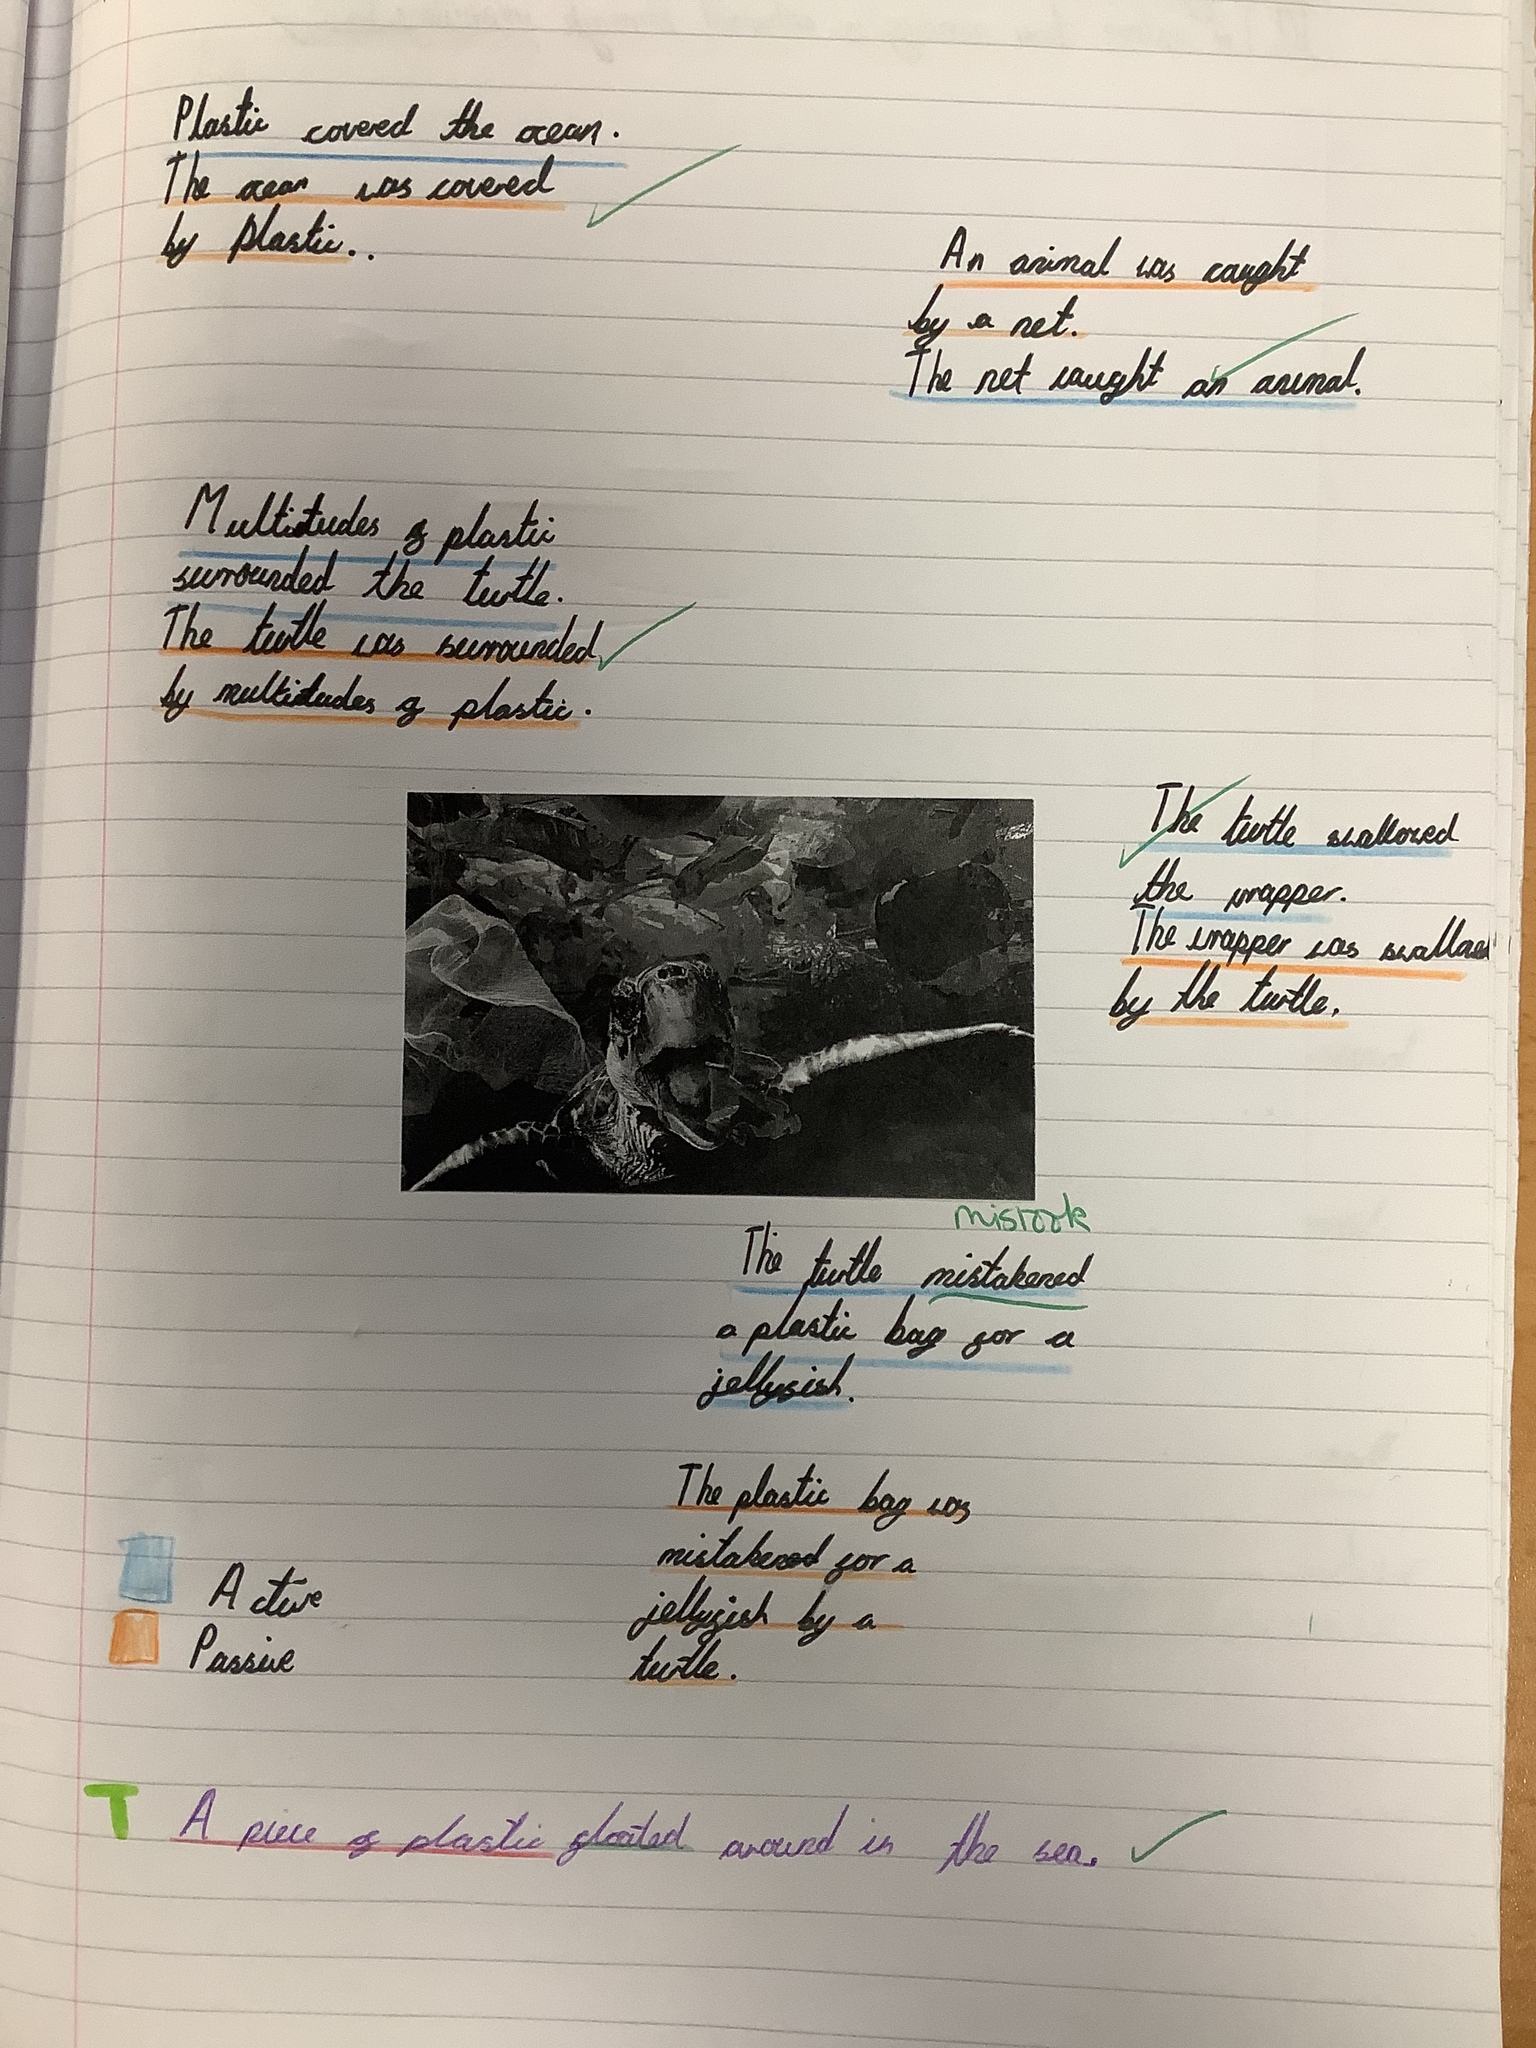 Plastic covered the ocean.
The ocean was covered
by plastic..
An animal was caught
by a net.
The net caught an animal.
Multitudes of plastic
surrounded the turtle.
The turtle was surrounded
by multitudes of plastic.
The turtle swallowed
the wrapper.
The wrapper was swallowed
by the turtle.
mistook
The turtle mistakened
a plastic bag for a
jellyfish.
The plastic bag was
mistakened for a
jellyfish by a
turtle.
Active
Passive
T A piece of plastic floated around in the sea.